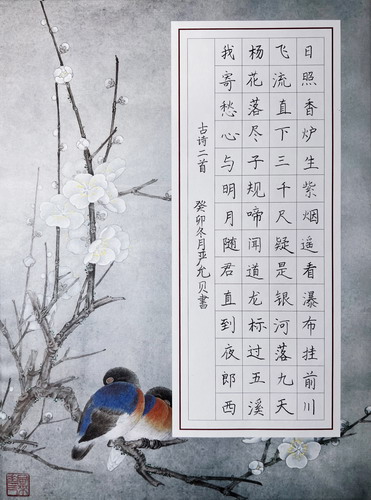 日照香炉生紫烟遥看瀑布挂前川
飞流直下三千尺疑是银河落九天
杨花落尽子规啼闻道龙标过五溪
我寄愁心与明月随君直到夜郎西
古诗二首 癸卯冬月严允贝書